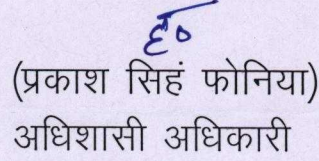 ह०
(प्रकाश सिहं फोनिया)
अधिशासी अधिकारी